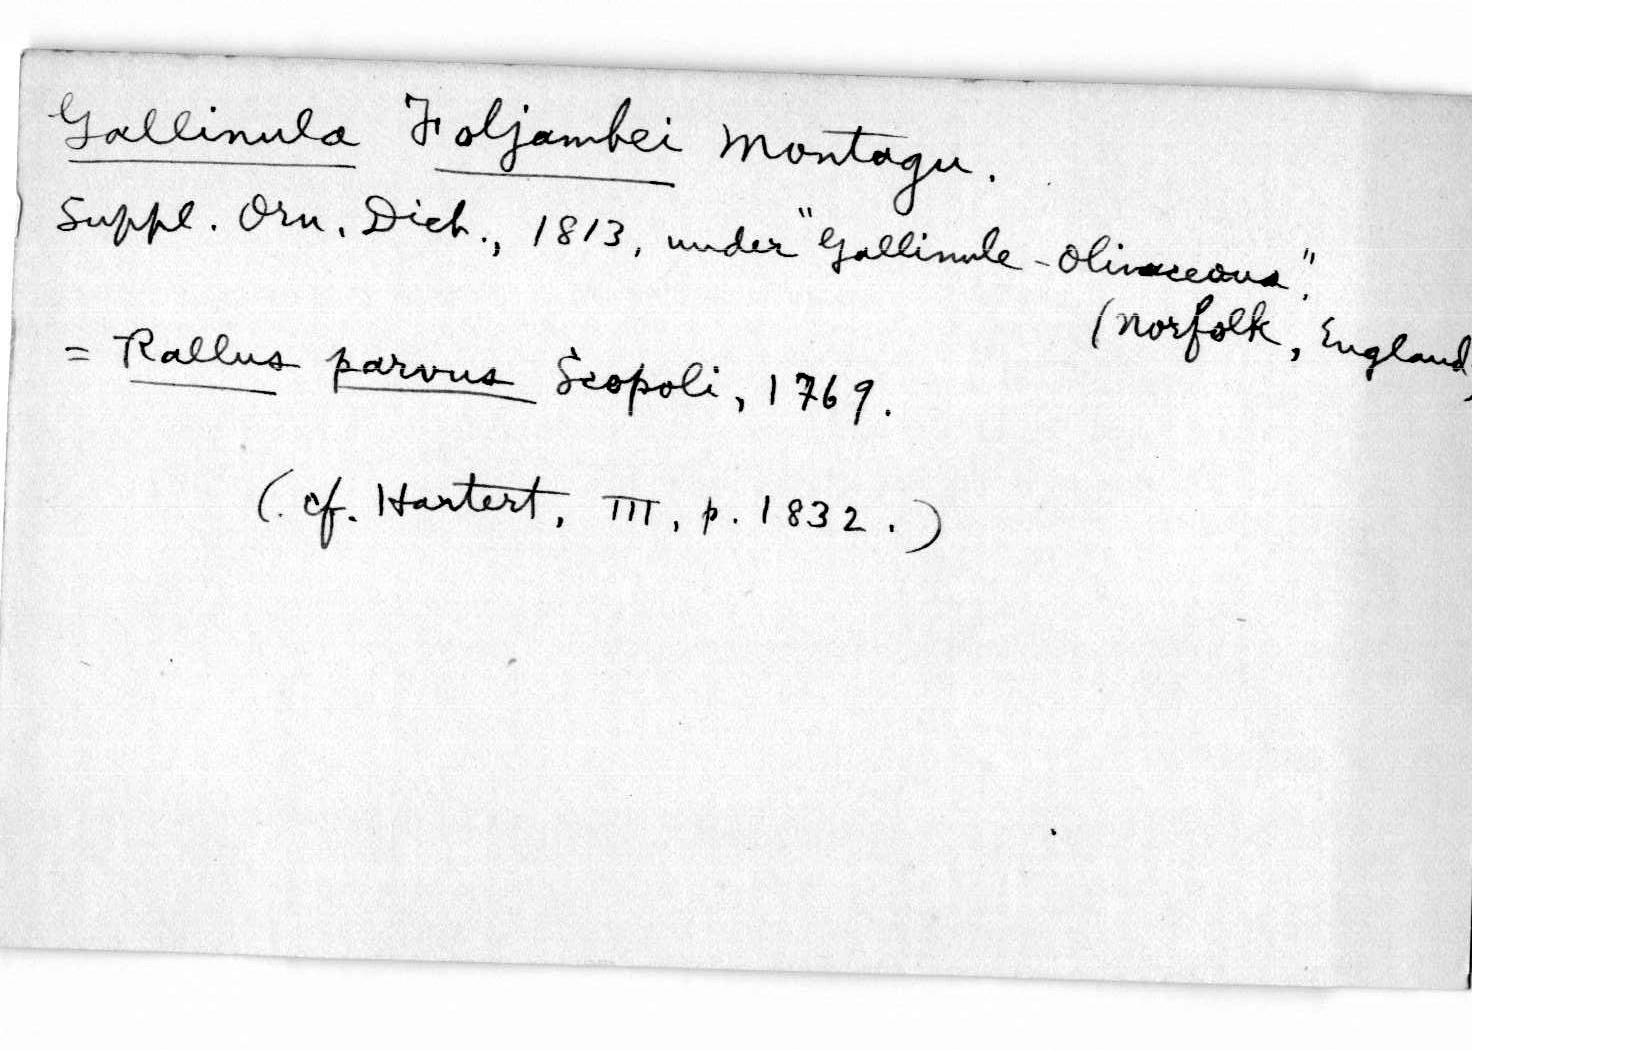 Gallinula Foljambei Montagu.
Suppl. Orn. Dict., 1813, under "Gallinule-Olivaceous".
(Norfolk, England)
= Rallus parvus Scopoli, 1769.
(cf. Hartert, III, p. 1832.)